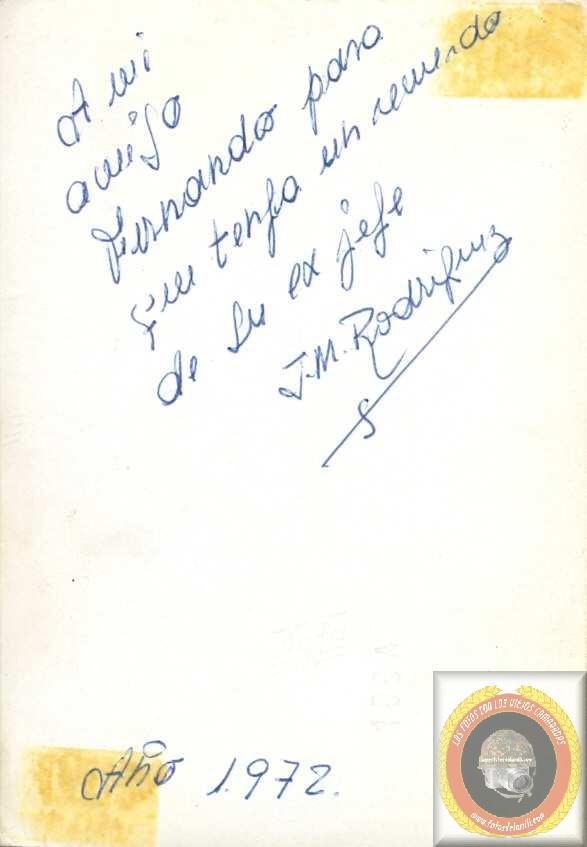 A mi
amigo
Fernando para
que tenga un recuerdo
de su ex jefe
J.M. Rodriguez
Año 1.972.
LAS FOTOS CON LOS VIEJOS CAMARADAS
www.fotosdelamili.com